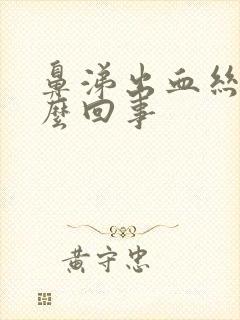 鼻涕出血絲
麼回事
黃守忠